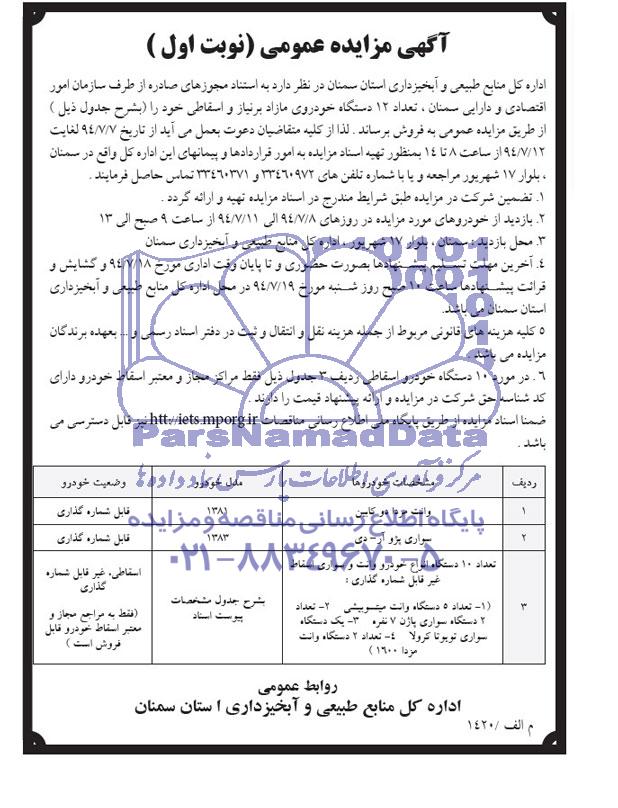 آگهی مزایده عمومی (نوبت اول )
اداره کل منابع طبیعی و آبخیزداری استان سمنان در نظر دارد به استناد مجوزهای صادره از طرف سازمان امور
اقتصادی و دارایی سمنان ، تعداد ۱۲ دستگاه خودروی مازاد برنیاز و اسقاطی خود را (بشرح جدول ذیل )
از طریق مزایده عمومی به فروش برساند . لذا از کلیه متقاضیان دعوت بعمل می آید از تاریخ ۹۴/۷/۷ لغایت
۹۴/۷/۱۲ از ساعت ۸ تا ۱۴ بمنظور تهیه اسناد مزایده به امور قراردادها و پیمانهای این اداره کل واقع در سمنان
، بلوار ۱۷ شهریور مراجعه و یا با شماره تلفن های ۳۳۴۶۰۹۷۲ و ۳۳۴۶۰۳۷۱ تماس حاصل فرمایند .
۱. تضمین شرکت در مزایده طبق شرایط مندرج در اسناد مزایده تهیه و ارائه گردد .
۲. بازدید از خودروهای مورد مزایده در روزهای ۹۴/۷/۸ الی ۹۴/۷/۱۱ از ساعت ۹ صبح الی ۱۳
۳. محل بازدید : سمنان ، بلوار ۱۷ شهریور ، اداره کل منابع طبیعی و آبخیزداری سمنان
۴. آخرین مهلت تسلیم پیشنهادها بصورت حضوری و تا پایان وقت اداری مورخ ۹۴/۷/۱۸ و گشایش و
قرائت پیشنهادها ساعت ۱۰ صبح روز شنبه مورخ ۹۴/۷/۱۹ در محل اداره کل منابع طبیعی و آبخیزداری
استان سمنان می باشد.
۵ کلیه هزینه های قانونی مربوط از جمله هزینه نقل و انتقال و ثبت در دفتر اسناد رسمی و ... بعهده برندگان
مزایده می باشد .
۶ . در مورد ۱۰ دستگاه خودرو اسقاطی ردیف ۳ جدول ذیل فقط مراکز مجاز و معتبر اسقاط خودرو دارای
کد شناسه حق شرکت در مزایده و ارائه پیشنهاد قیمت را دارند .
ضمنا اسناد مزایده از طریق پایگاه ملی اطلاع رسانی مناقصات htt://iets.mporg.ir نیز قابل دسترسی می
باشد .
ParsNamadData
مرکز فرآوری اطلاعات پارس نماد داده ها
پایگاه اطلاع رسانی مناقصه و مزایده
۰۲۱-۸۸۳۴۹۶۷۰-۵
ردیف مشخصات خودروها مدل خودرو وضعیت خودرو
۱ وانت مزدا دو کابین ۱۳۸۱ قابل شماره گذاری
۲ سواری پژو آر- دی ۱۳۸۳ قابل شماره گذاری
۳ تعداد ۱۰ دستگاه انواع خودرو وانت و سواری اسقاط
غیر قابل شماره گذاری :
(۱- تعداد ۵ دستگاه وانت میتسوبیشی ۲- تعداد
۲ دستگاه سواری پاژن ۷ نفره ۳- یک دستگاه
سواری تویوتا کرولا ۴- تعداد ۲ دستگاه وانت
مزدا ۱۶۰۰ )
بشرح جدول مشخصات
پیوست اسناد
اسقاطی، غیر قابل شماره
گذاری
(فقط به مراجع مجاز و
معتبر اسقاط خودرو قابل
فروش است )
روابط عمومی
اداره کل منابع طبیعی و آبخیزداری ا ستان سمنان
م الف /۱۴۲۰